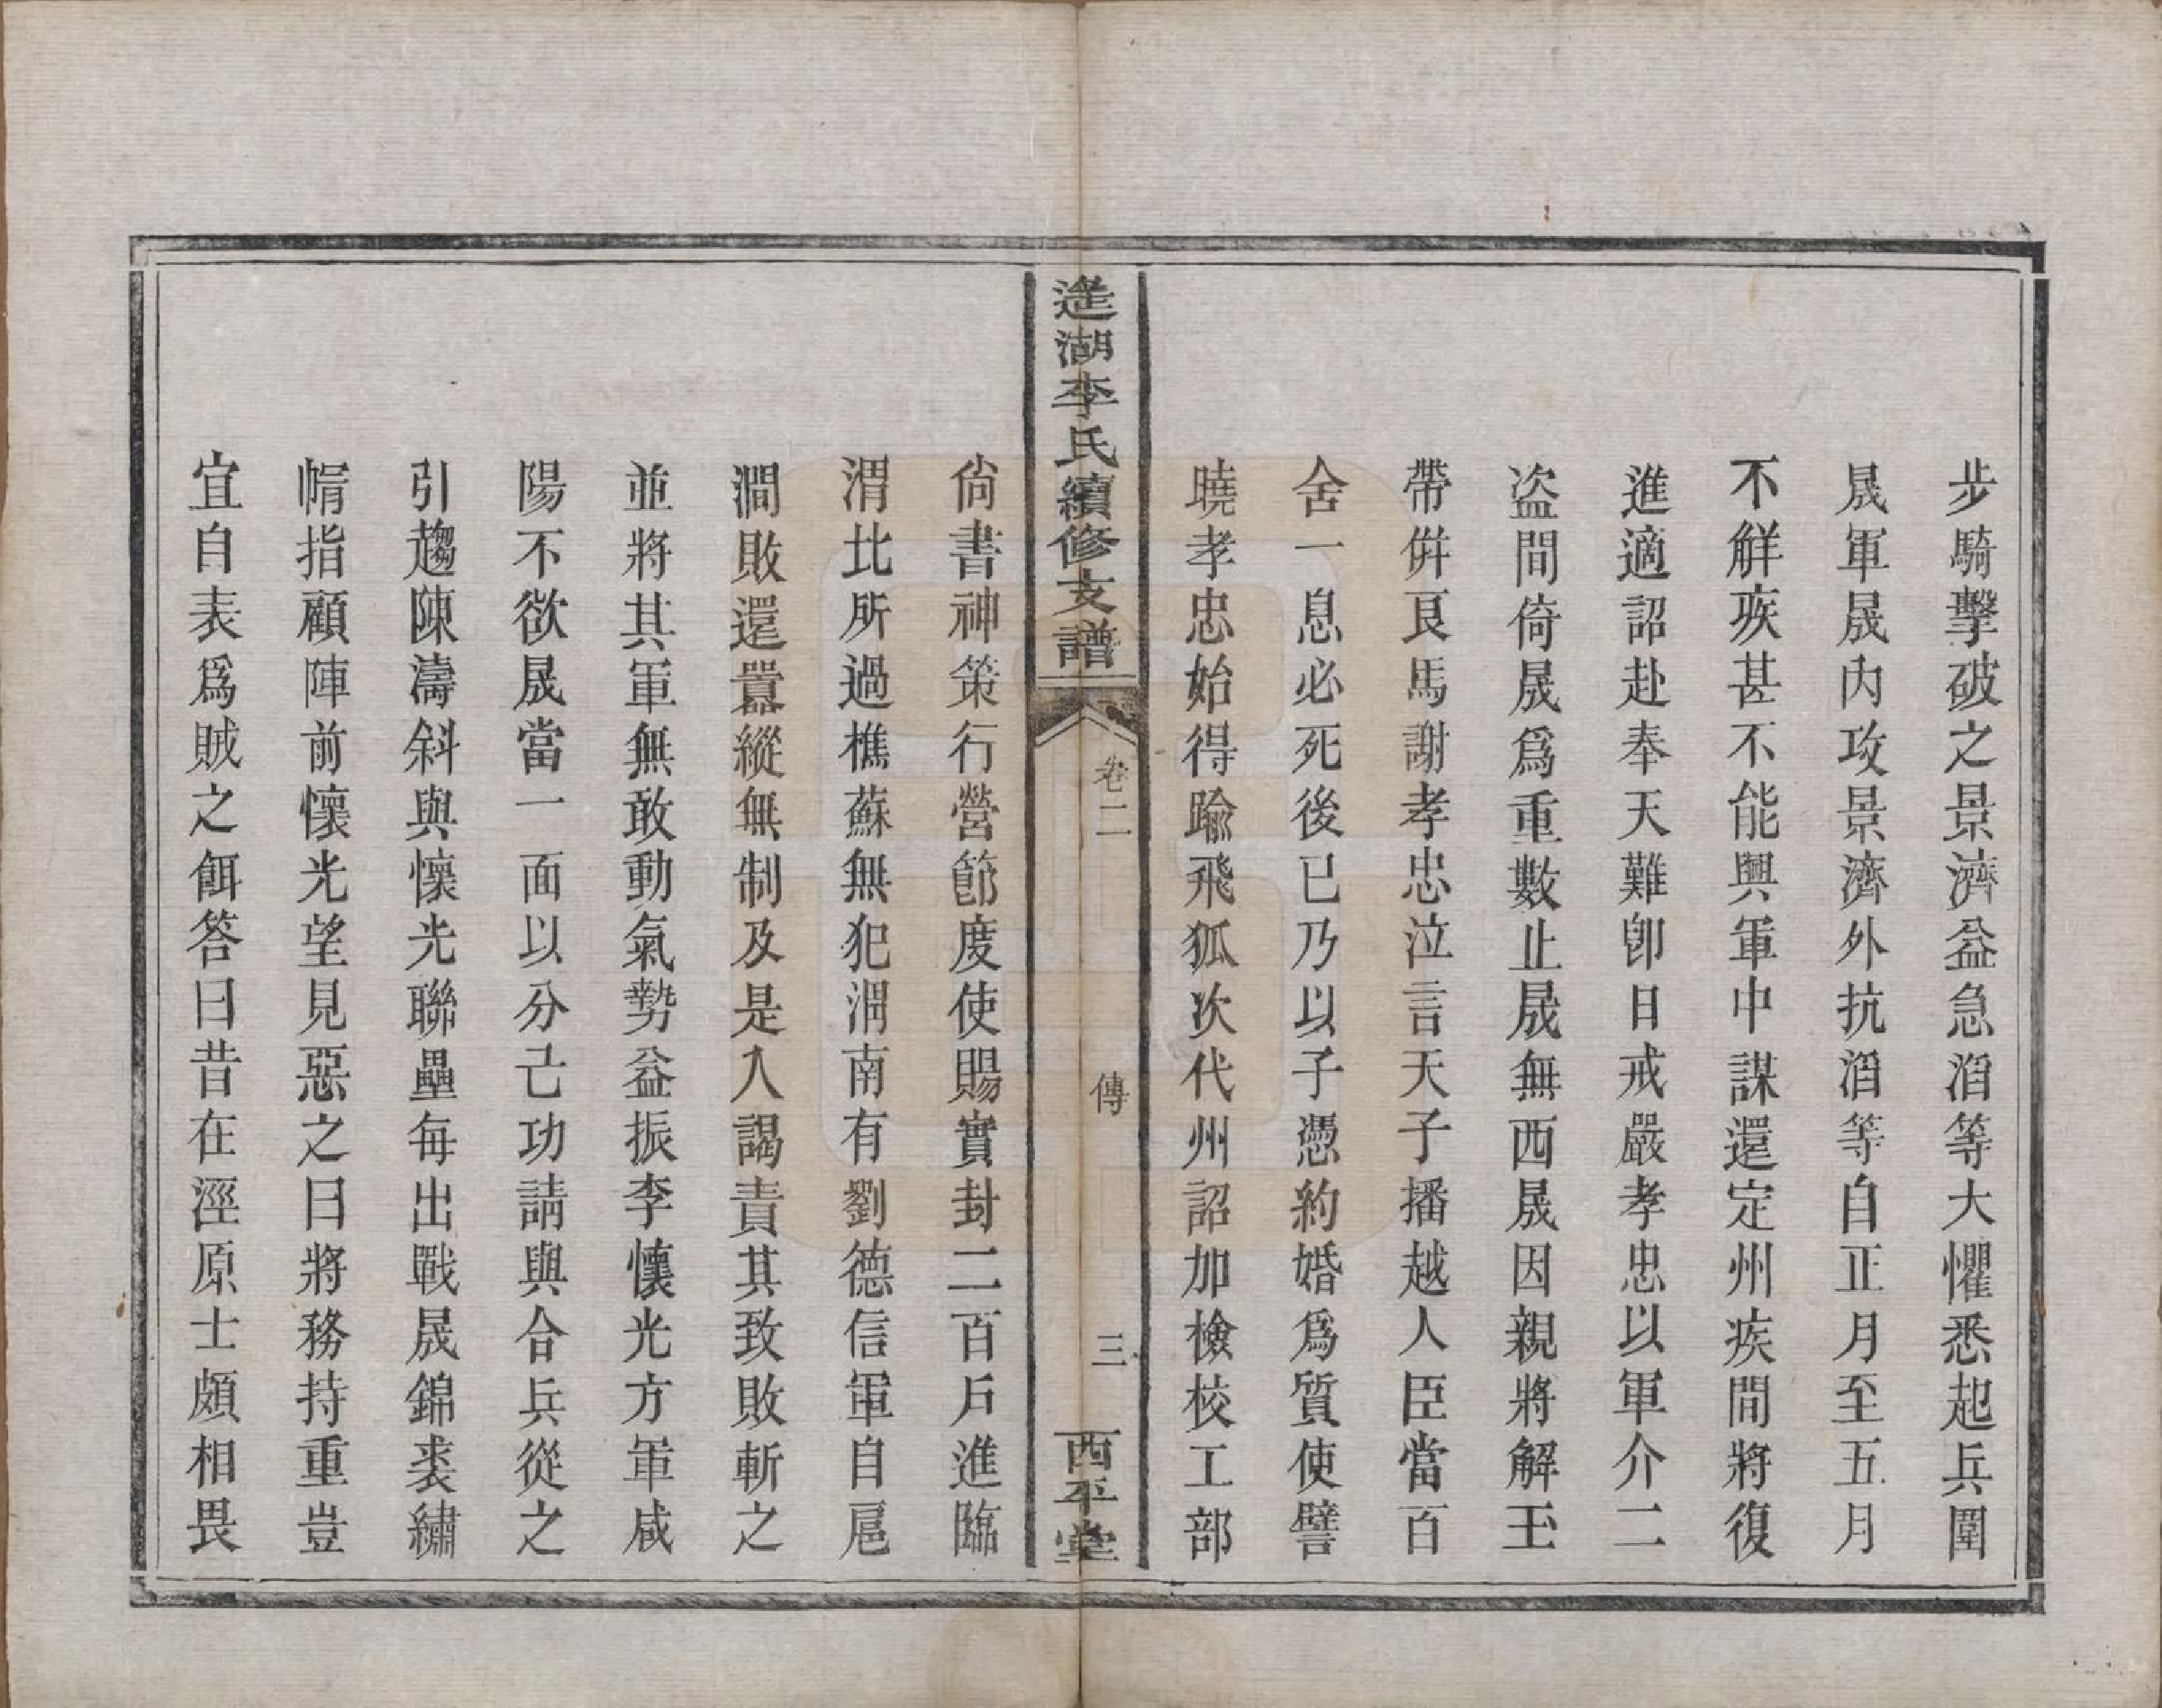 步騎擊破之景濟益急滔等大懼悉起兵圍
晟軍晟内攻景濟外抗滔等自正月至五月
不解疾甚不能興軍中謀還定州疾間將復
進適詔赴奉天難卽日戒嚴孝忠以軍介二
盗間倚晟爲重數止晟無西晟因親將解玉
帶倂良馬謝孝忠泣言天子播越人臣當百
舍一息必死後已乃以子憑約婚爲質使譬
曉孝忠始得踰飛狐次代州詔加檢校工部
湖李氏續修支譜
卷二
傳
三
西平堂
尙書神策行營節度使賜實封二百戶進臨
渭北所過樵蘇無犯渭南有劉德信軍自扈
澗敗還囂縱無制及是入謁責其致敗斬之
並將其軍無敢動氣勢益振李懷光方軍咸
陽不欲晟當一面以分己功請與合兵從之
引趨陳濤斜與懷光聯壘每出戰晟錦裘繡
帽指顧陣前懷光望見惡之曰將務持重豈
宜自表爲賊之餌答曰昔在涇原士頗相畏